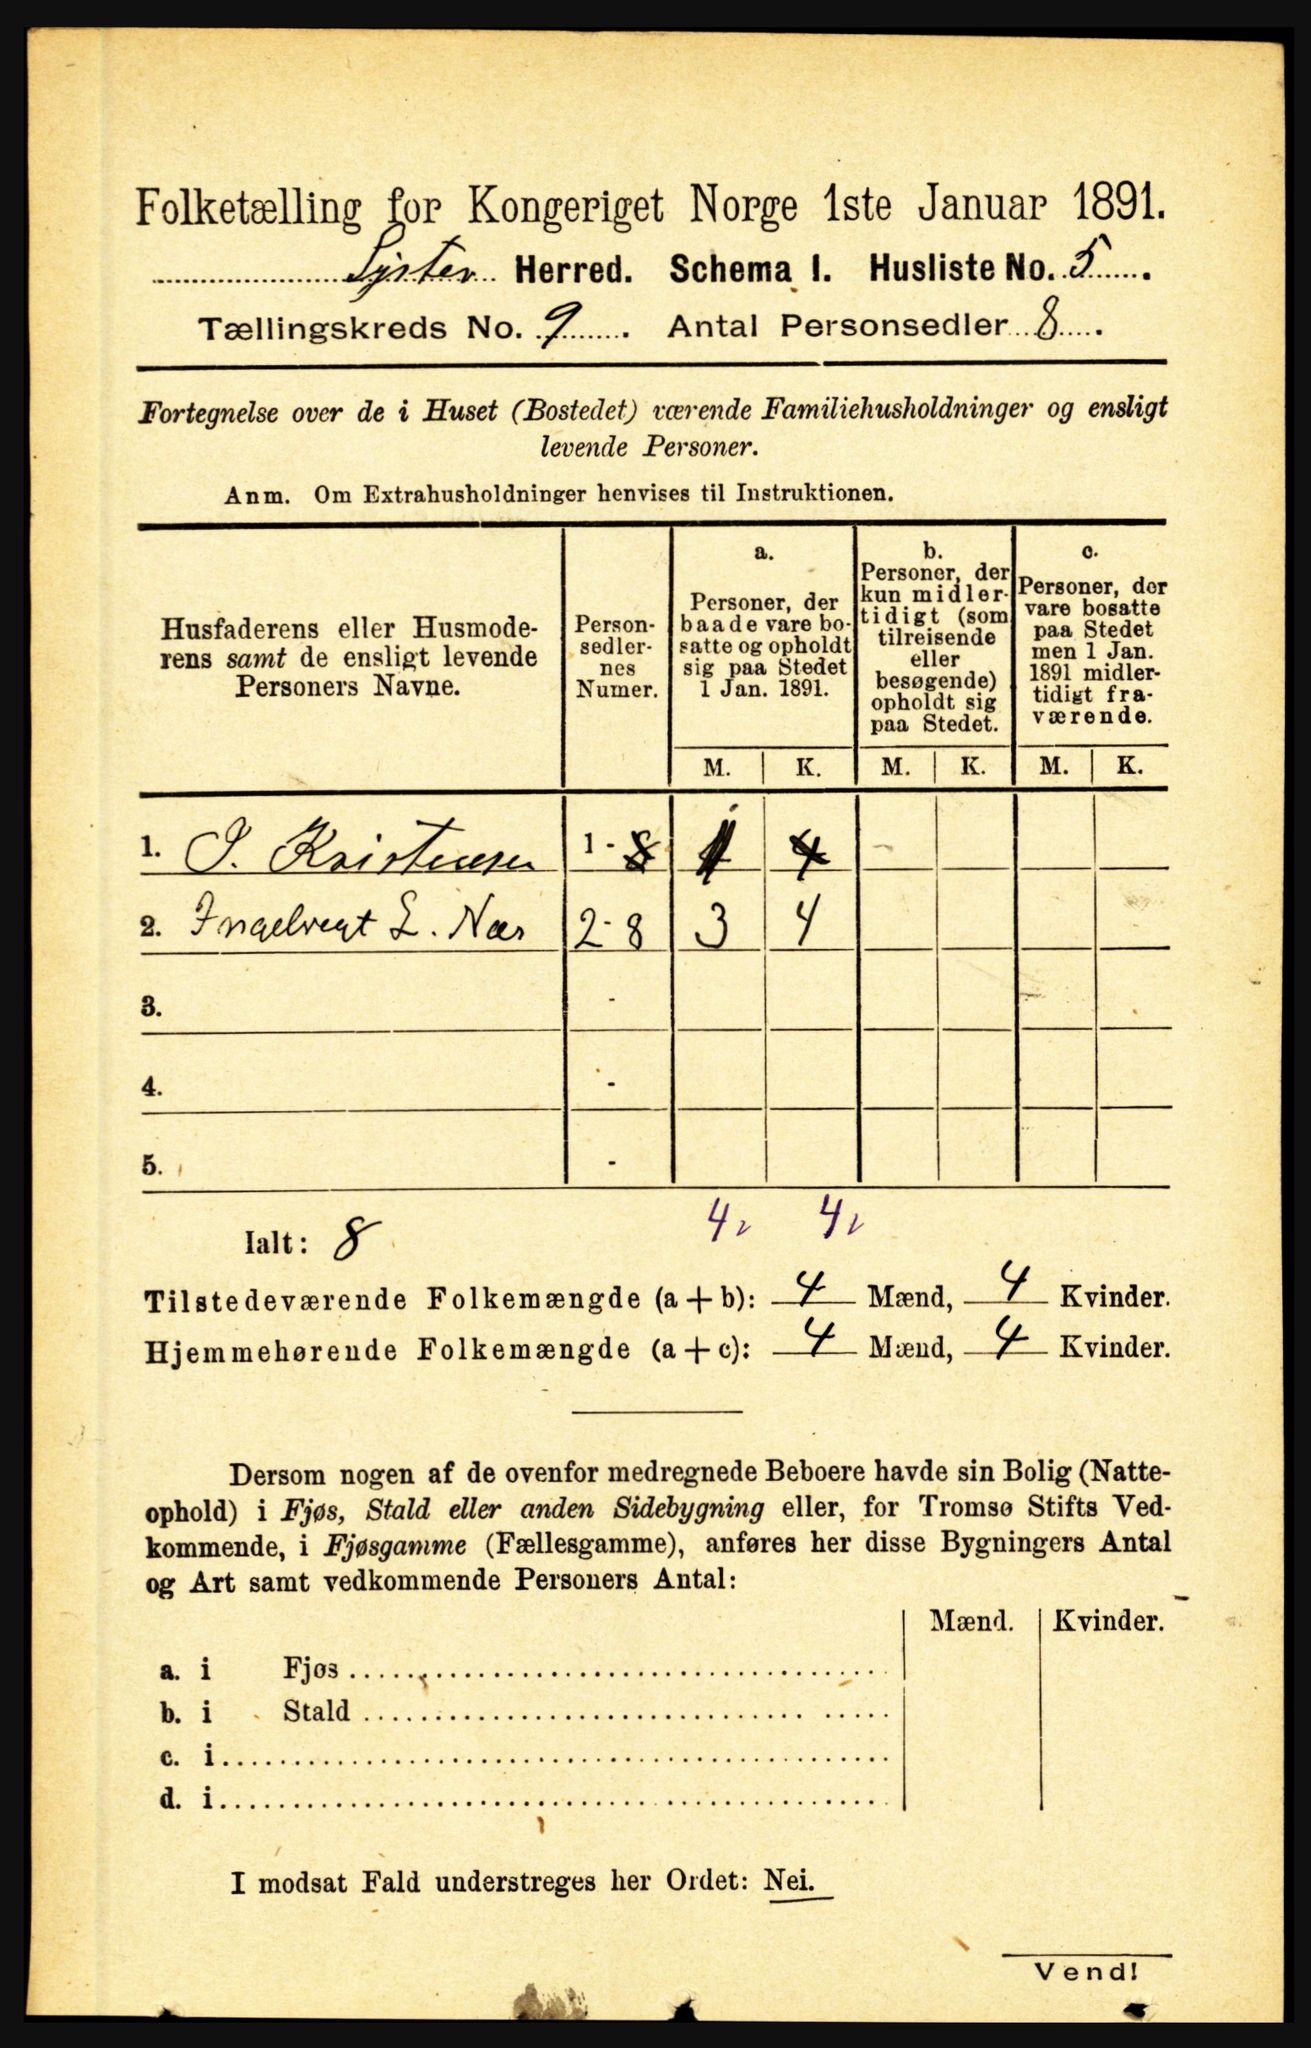 Folketælling for Kongeriget Norge 1ste Januar 1891.
Lyster Herred. Schema I. Husliste No. 5.
Tællingskreds No. 9. Antal Personsedler 8.
Fortegnelse over de i Huset (Bostedet) værende Familiehusholdninger og ensligt
levende Personer.
Anm. Om Extrahusholdninger henvises til Instruktionen.
Husfaderens eller Husmode-
rens samt de ensligt levende
Personers Navne.
Person-
sedler-
nes
Numer.
a.
Personer, der
baade vare bo-
satte og opholdt
sig paa Stedet
1 Jan. 1891.
b.
Personer, der
kun midler-
tidigt (som
tilreisende
eller
besøgende)
opholdt sig
paa Stedet.
c.
Personer, der
vare bosatte
paa Stedet
men 1 Jan.
1891 midler-
tidigt fra-
værende.
M. K. M. K. M. K.
1. J. Kristensen 1 - 8 4
2. Ingelvegt L. Næs 2-8 3 4
3. -
4. -
5. -
4 4
Ialt: 8
Tilstedeværende Folkemængde (a + b): 4 Mænd, 4 Kvinder.
Hjemmehørende Folkemængde (a + c): 4 Mænd, 4 Kvinder.
Dersom nogen af de ovenfor medregnede Beboere havde sin Bolig (Natte-
ophold) i Fjøs, Stald eller anden Sidebygning eller, for Tromsø Stifts Ved-
kommende, i Fjøsgamme (Fællesgamme), anføres her disse Bygningers Antal
og Art samt vedkommende Personers Antal:
Mænd. Kvinder.
a. i Fjøs
b. i Stald
c. i
d. i
I modsat Fald understreges her Ordet: Nei.
Vend!